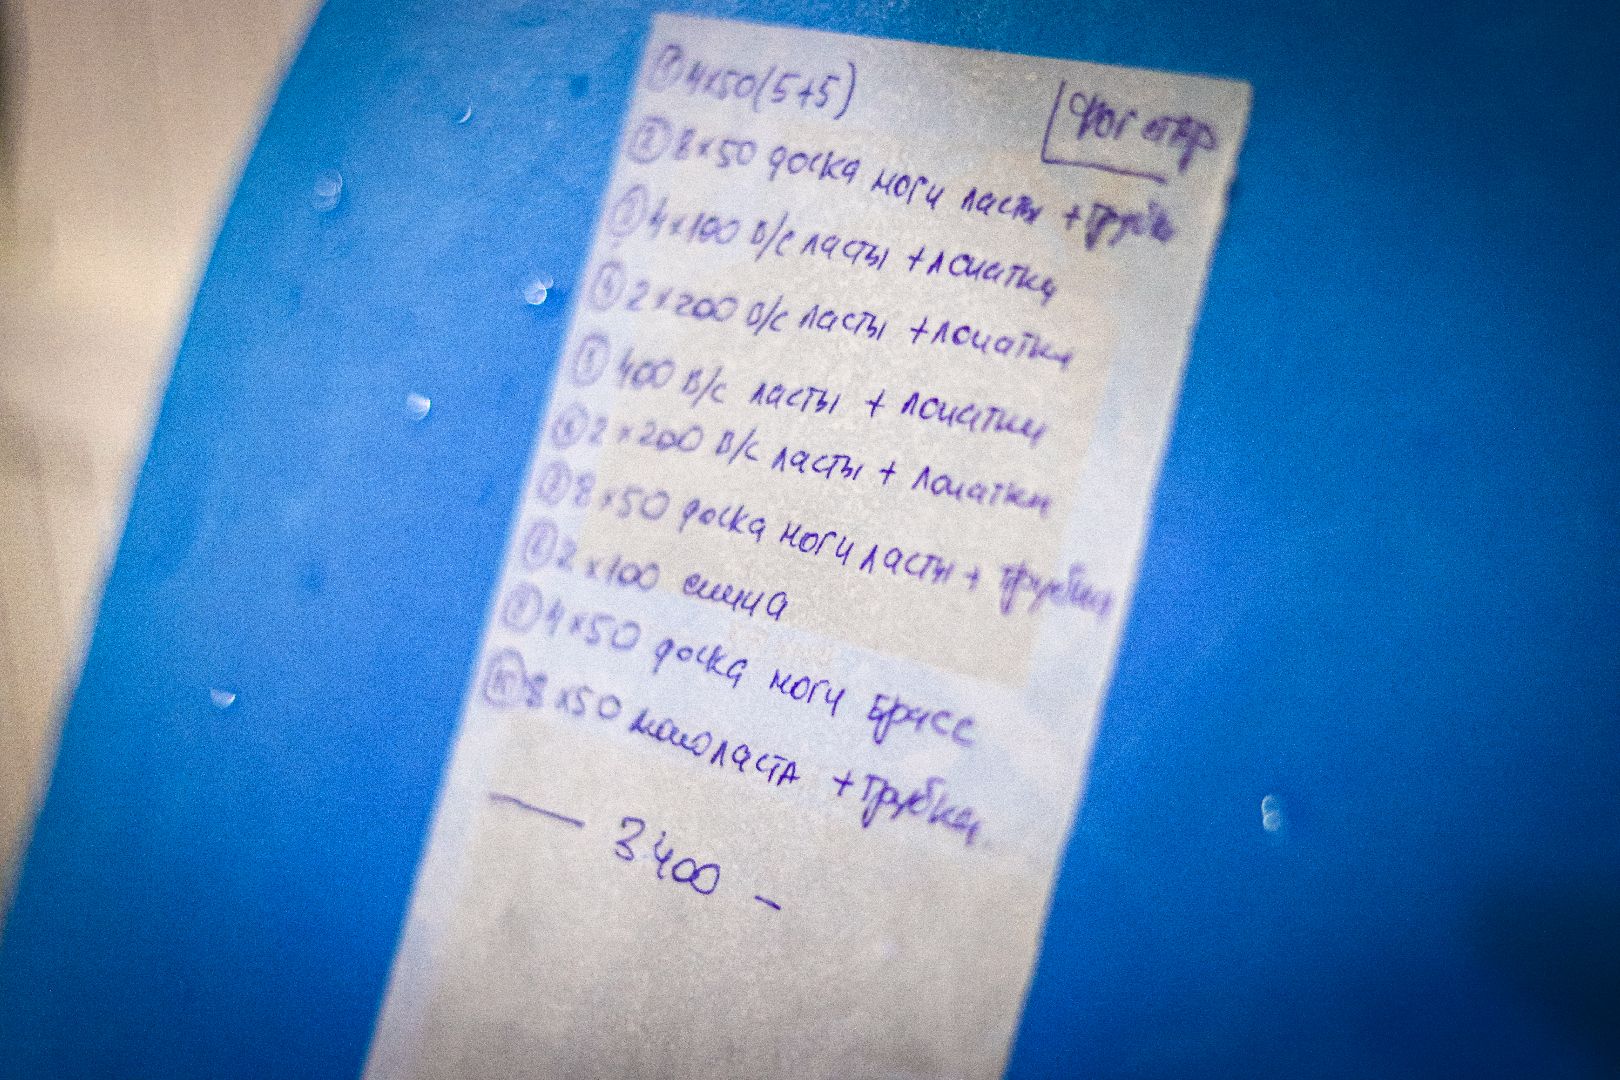 ① 4x50(5+5)
② 8x50 доска ноги ласты + трубка
③ 4x100 в/с ласты + лопатки
④ 2x200 в/с ласты + лопатки
⑤ 400 в/с ласты + лопатки
⑥ 2x200 в/с ласты + лопатки
⑦ 8x50 доска ноги ласты + трубка
⑧ 2x100 спина
⑨ 4x50 доска ноги брасс
⑩ 8x50 моноласта + трубка
3400 –